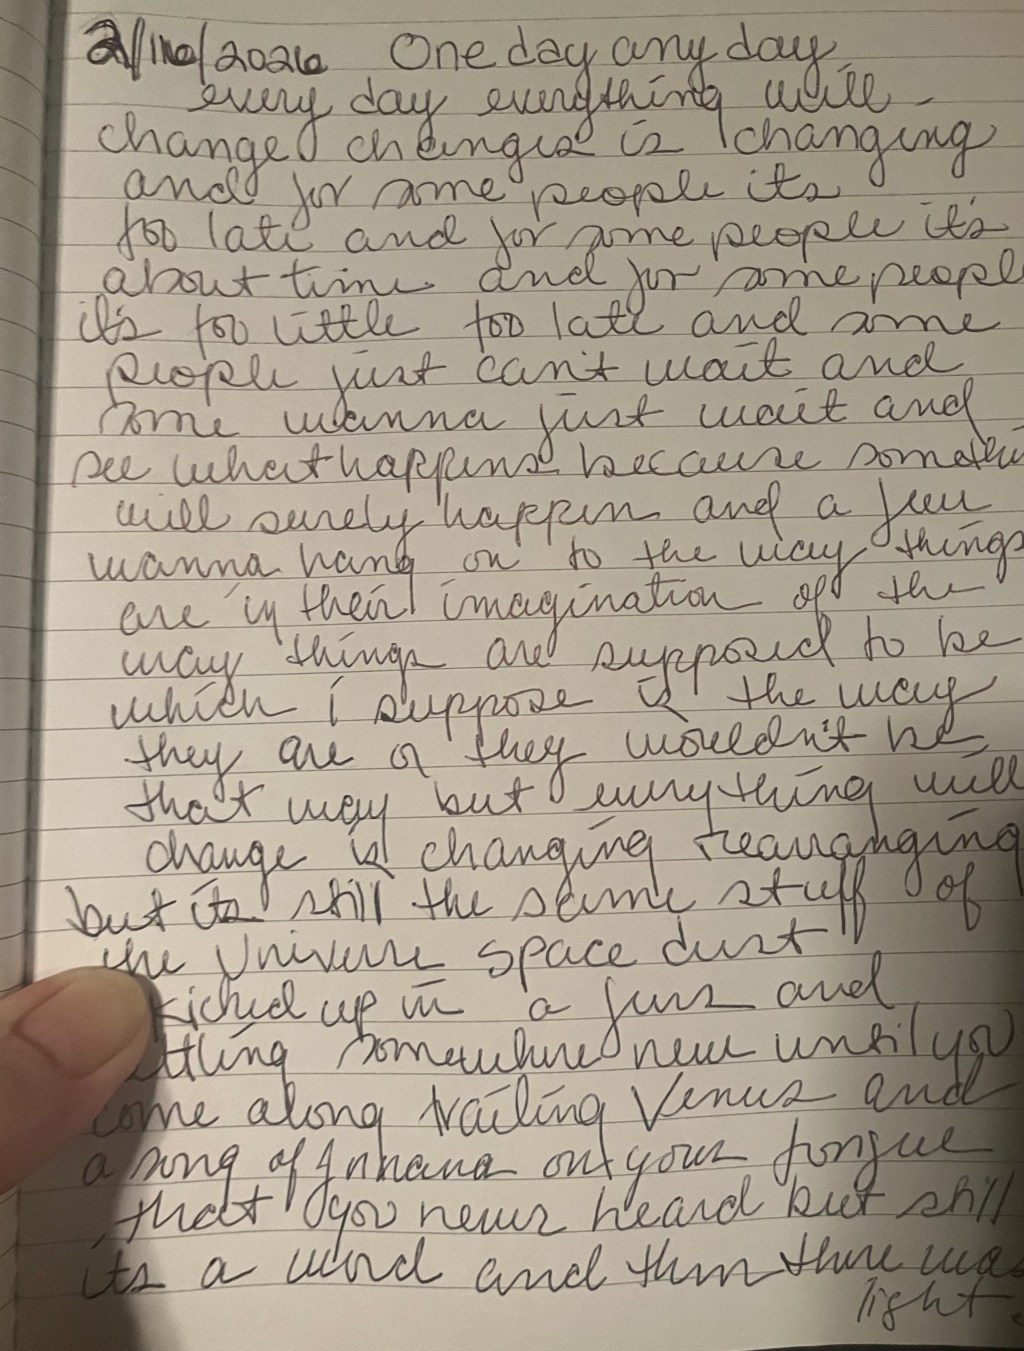 2/16/2026 One day any day
every day everything will
change changes is changing
and for some people its
too late and for some people it's
about time and for some people
it's too little too late and some
people just can't wait and
some wanna just wait and
see what happens because somethi
will surely happen and a few
wanna hang on to the way things
are in their imagination of the
way things are supposed to be
which i suppose is the way
they are or they wouldn't be
that way but everything will
change is changing rearranging
but its still the same stuff of
the Universe space dust
kicked up in a furs and
ttling somewhere new until you
come along trailing Venus and
a song of Inhana on your tongue
that you never heard but still
its a word and then there was
light.